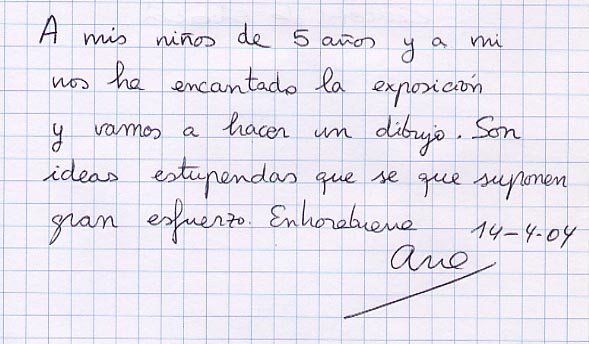 A mis niños de 5 años y a mi
nos ha encantado la exposición
y vamos a hacer un dibujo. Son
ideas estupendas que se que suponen
gran esfuerzo. Enhorabuena
14-4-04
Ana